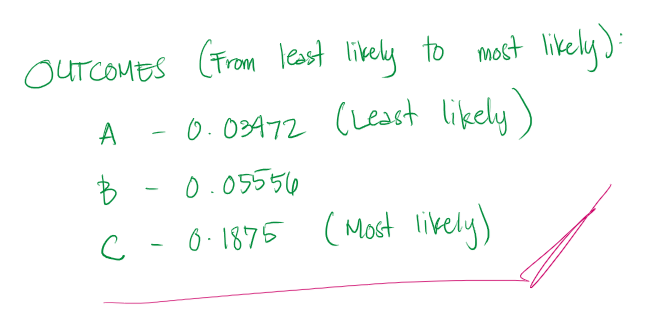 OUTCOMES (From least likely to most likely):
A - 0.03472 (Least likely)
B - 0.05556
C - 0.1875 (Most likely)